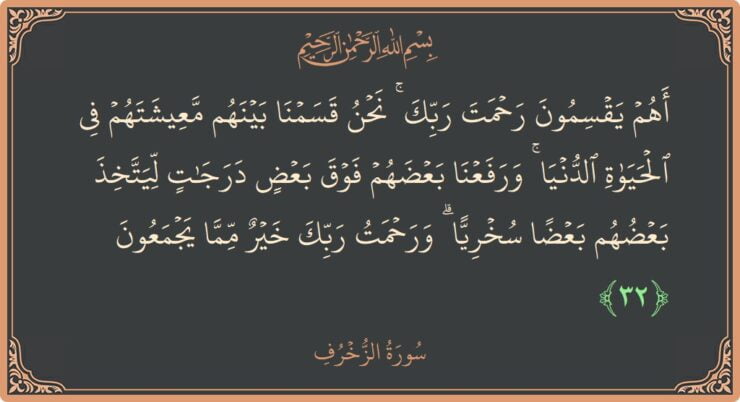 بِسْمِ اللَّهِ الرَّحْمَٰنِ الرَّحِيمِ
أَهُمْ يَقْسِمُونَ رَحْمَتَ رَبِّكَ ۚ نَحْنُ قَسَمْنَا بَيْنَهُم مَّعِيشَتَهُمْ فِي
الْحَيَوٰةِ الدُّنْيَا ۚ وَرَفَعْنَا بَعْضَهُمْ فَوْقَ بَعْضٍ دَرَجَٰتٍ لِّيَتَّخِذَ
بَعْضُهُم بَعْضًا سُخْرِيًّا ۗ وَرَحْمَتُ رَبِّكَ خَيْرٌ مِّمَّا يَجْمَعُونَ
﴿٣٢﴾
سُورَةُ الزُّخْرُفِ